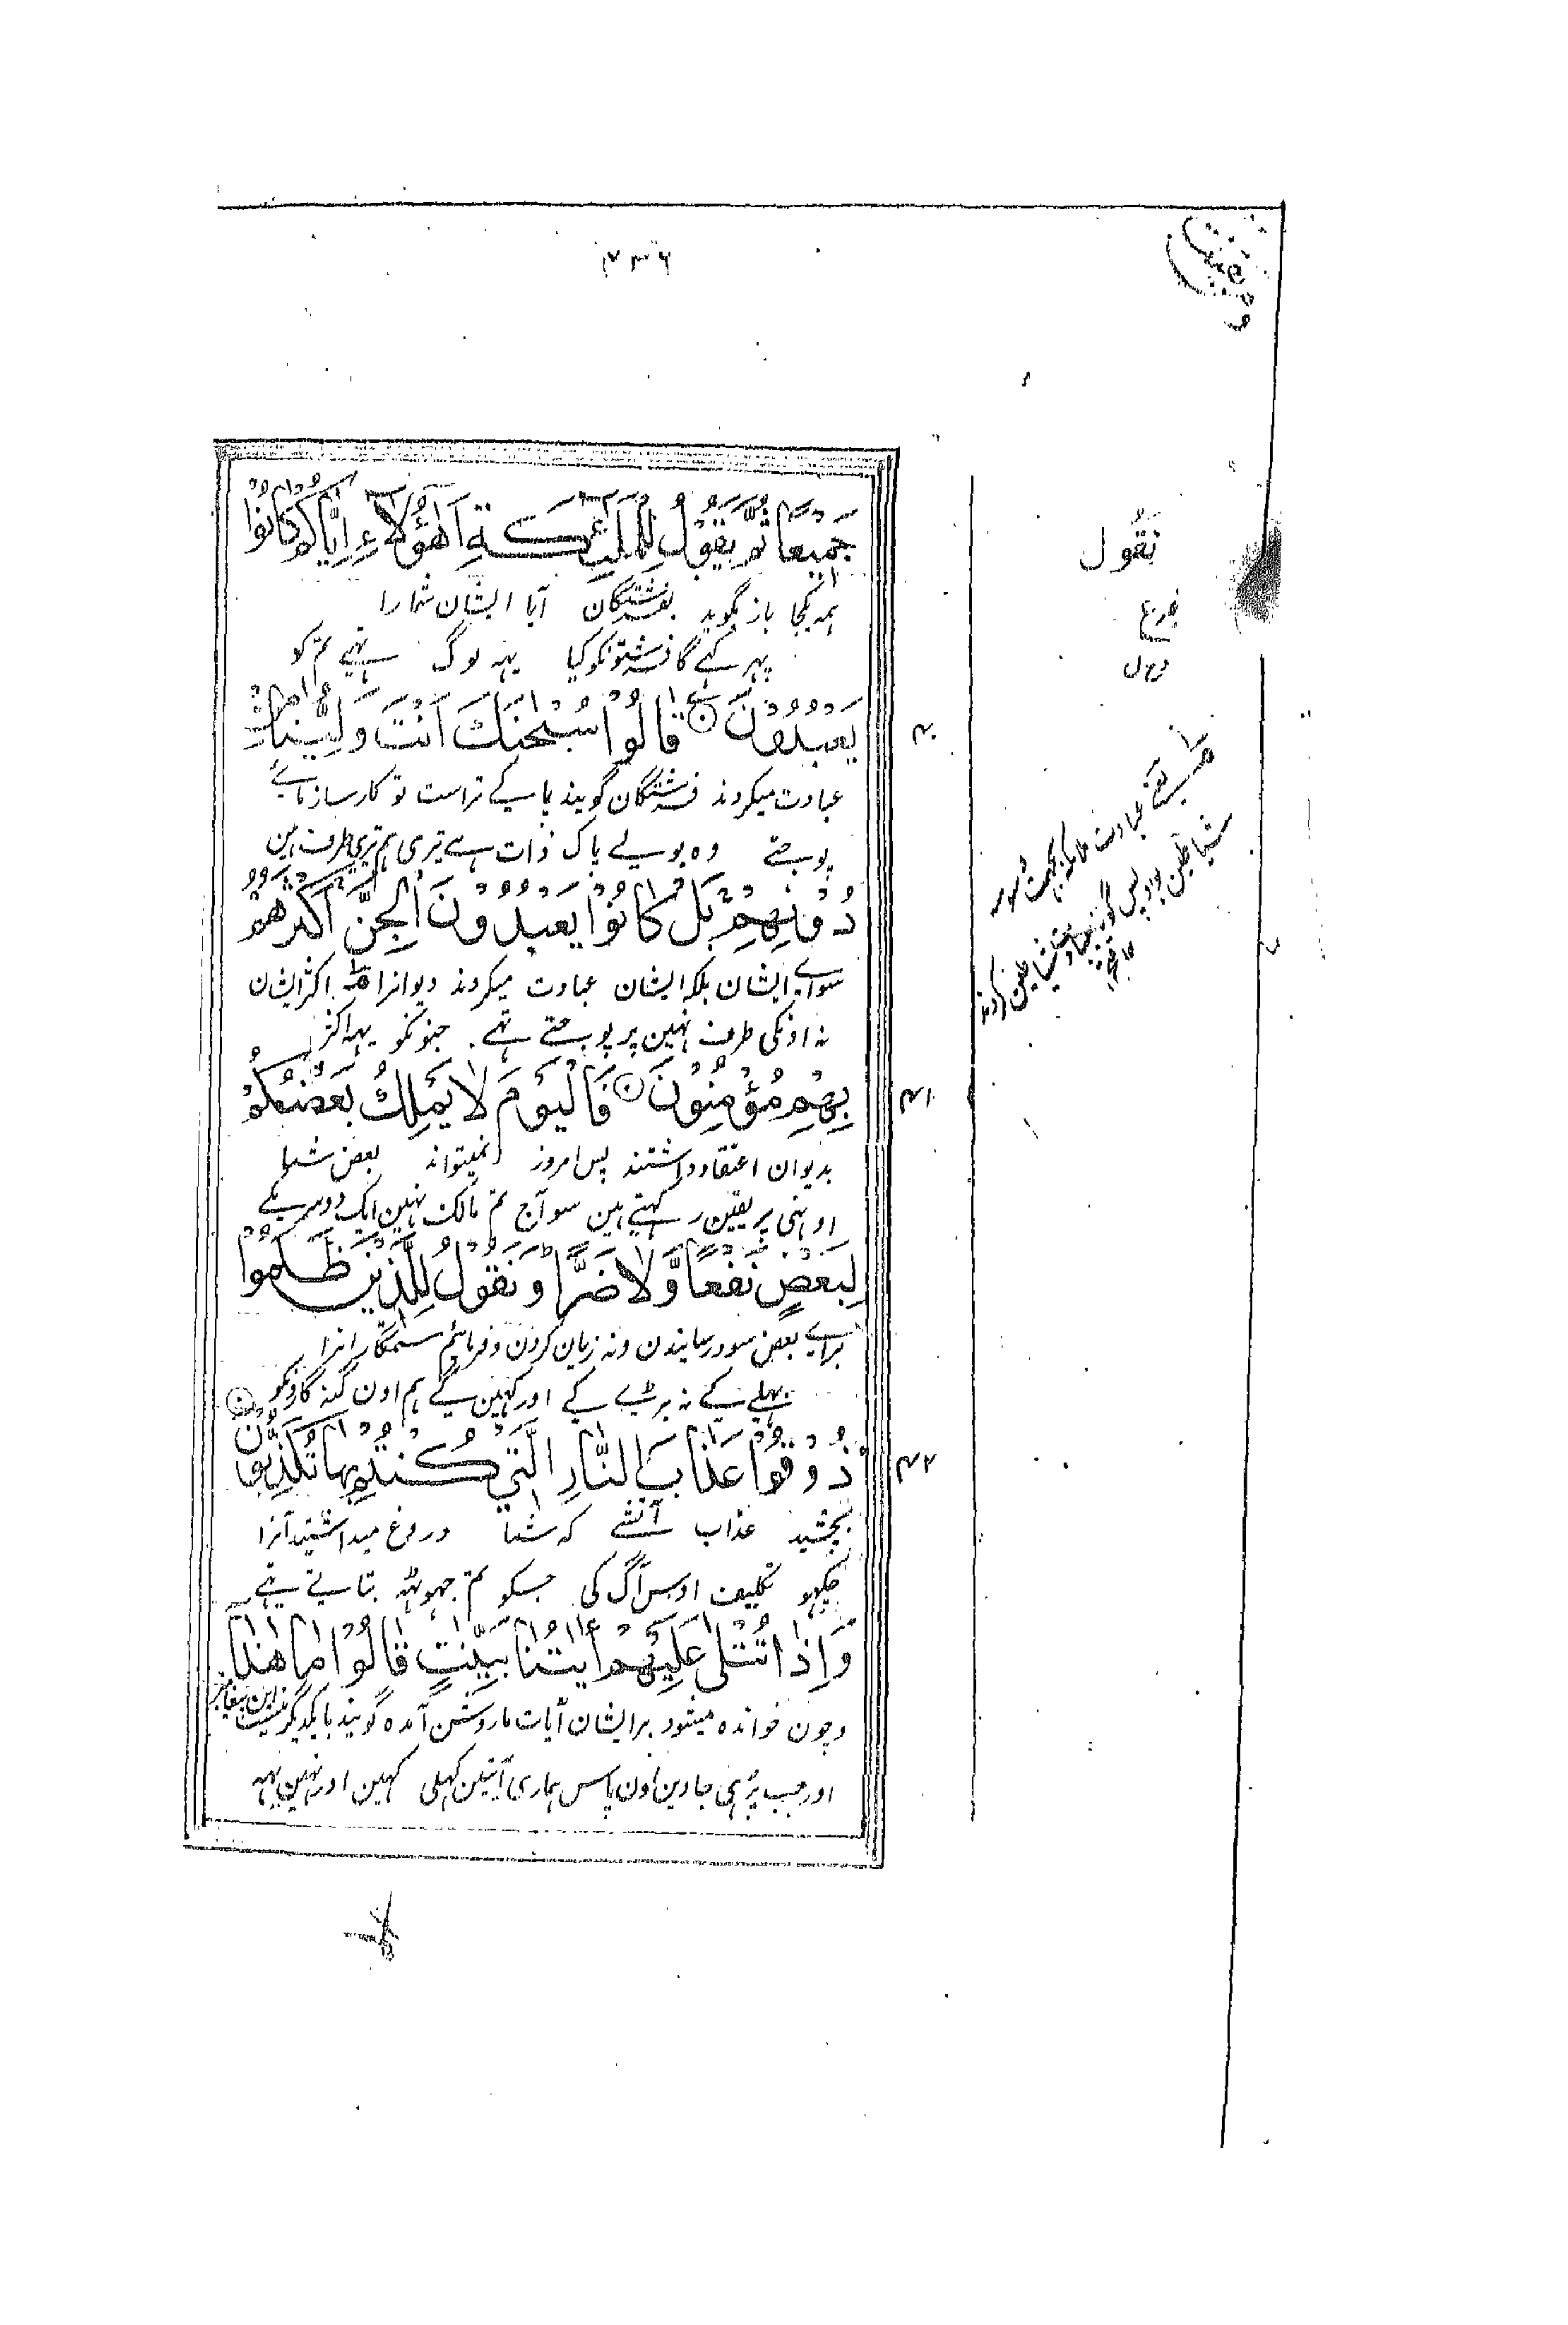 ۴۳۶
جَمِيْعًا ثُمَّ يَقُوْلُ لِلْمَلٰٓئِكَةِ اَهٰٓؤُلَآءِ اِيَّاكُمْ كَانُوْا
همه یکجا باز بگوید بفرشتگان آیا ایشان شما را
پہر کہے گا فرشتونکو کیا یہہ لوگ تہے تمکو
يَعْبُدُوْنَ ۞ قَالُوْا سُبْحٰنَكَ اَنْتَ وَلِيُّنَا مِنْ
عبادت میکردند فرشتگان گویند پاکے تراست تو کارساز مائے
پوجتے وہ بولے پاک ذات ہے تیری ہم تیری طرف ہین
دُوْنِهِمْ بَلْ كَانُوْا يَعْبُدُوْنَ الْجِنَّ اَكْثَرُهُمْ
سواے ایشان بلکہ ایشان عبادت میکردند دیوانرا اکثر ایشان
نہ اونکی طرف نہین پر پوجتے تہے جنونکو یہہ اکثر
بِهِمْ مُؤْمِنُوْنَ ۞ فَالْيَوْمَ لَا يَمْلِكُ بَعْضُكُمْ
بدیوان اعتقاد داشتند پس امروز نمیتواند بعض شما
اونہی پر یقین رکہتے ہین سو آج تم مالک نہین ایک دوسریکے
لِبَعْضٍ نَفْعًا وَّلَا ضَرًّا وَنَقُوْلُ لِلَّذِيْنَ ظَلَمُوْا
براے بعض سود رسانیدن و نہ زیان کردن و فرمائیم ستمگارانرا
بہلے کے نہ برے کے اور کہین گے ہم اون گنہ گارونکو
ذُوْقُوْا عَذَابَ النَّارِ الَّتِيْ كُنْتُمْ بِهَا تُكَذِّبُوْنَ ۞
بچشید عذاب آتشے کہ شما دروغ میداشتید آنرا
چکہو تکلیف اوس آگ کی جسکو تم جہوٹہہ بتاتے تہے
وَاِذَا تُتْلٰى عَلَيْهِمْ اٰيٰتُنَا بَيِّنٰتٍ قَالُوْا مَا هٰذَا
و چون خواندہ میشود بر ایشان آیات ما روشن آمدہ گویند با یکدیگر نیست این پیغامبر
اور جب پڑہی جاوین اون پاس ہماری آیتین کہلی کہین اور نہین یہہ
نَقُول
۴۰
۴۱
۴۲